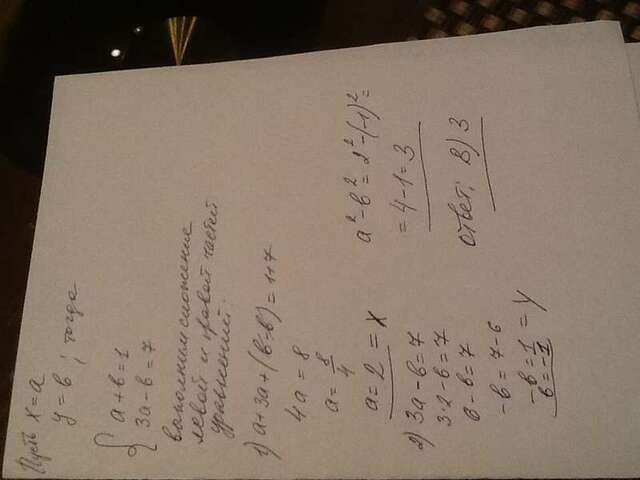 Пусть x=a
y=b ; тогда
{ a+b=1
3a-b=7
выполним сложение
левой и правой частей
уравнений:
1) a+3a+(b-b)=1+7
4a=8
a=8/4
a=2 =x
2) 3a-b=7
3·2-b=7
6-b=7
-b=7-6
-b=1
b=-1 =y
a²-b²=2²-(-1)²=
=4-1=3
ответ: В) 3